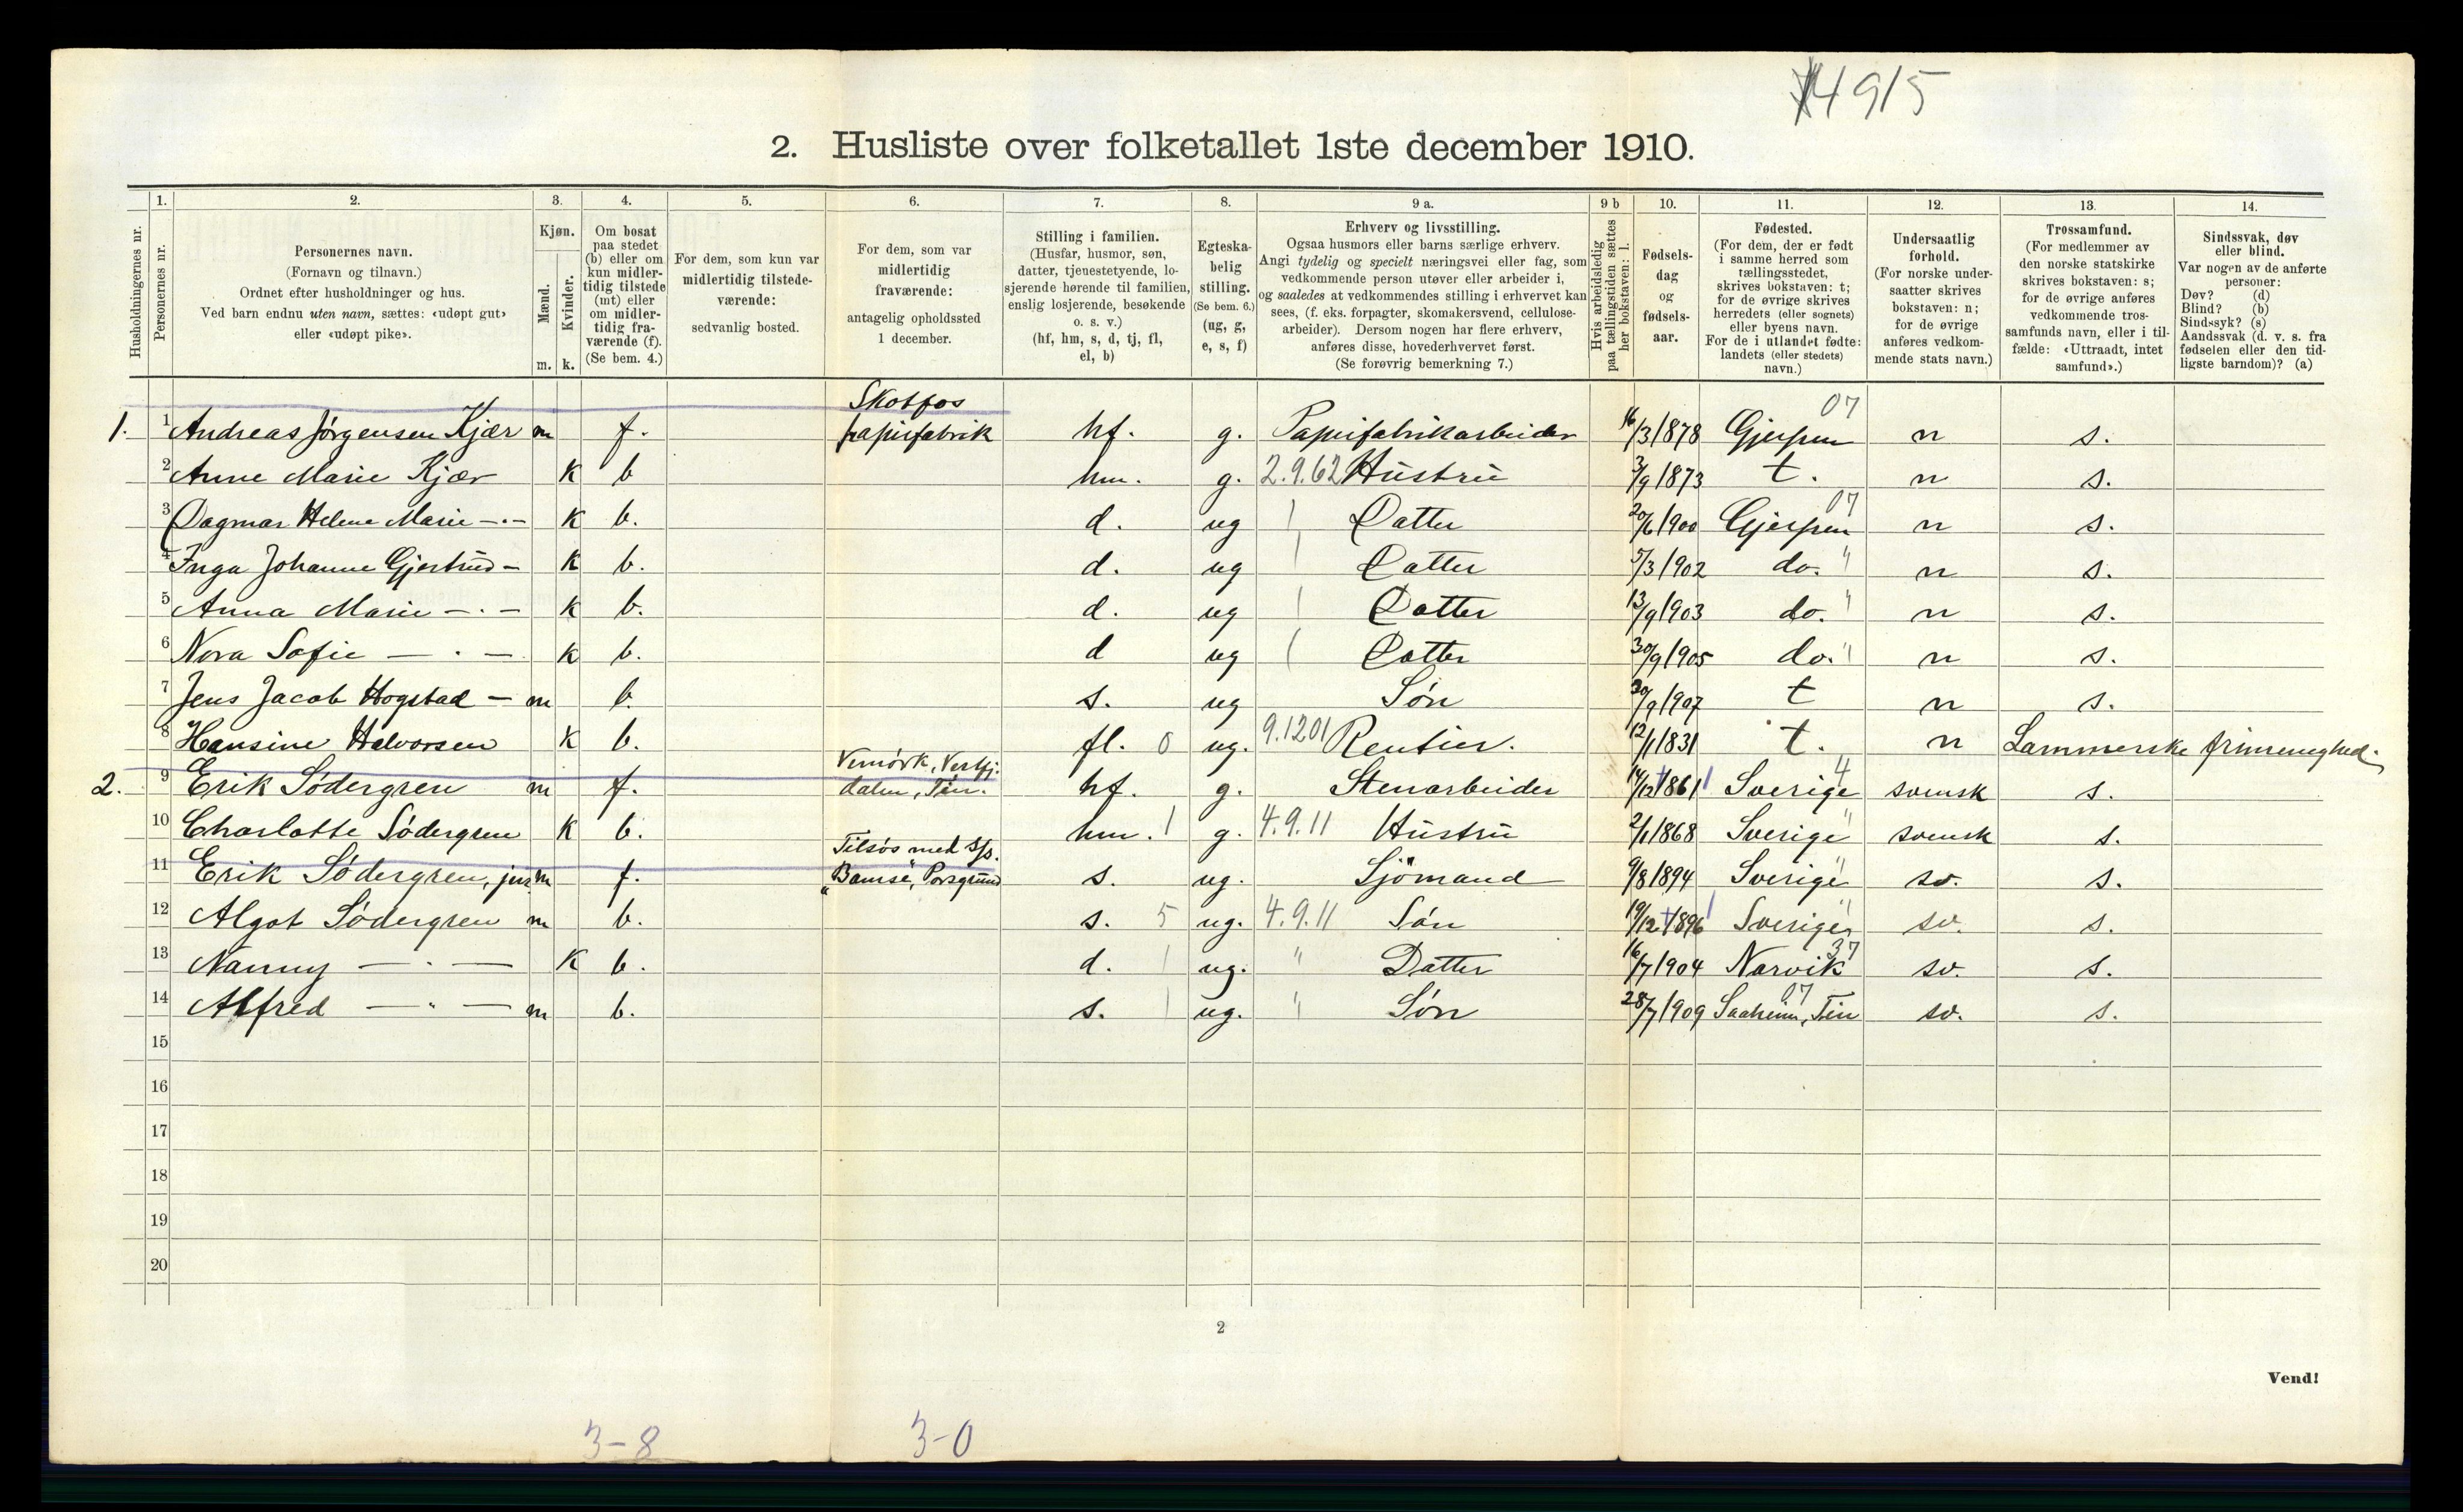 14915
2. Husliste over folketallet 1ste december 1910.
Husholdningernes nr.
1. Personernes nr.
2. Personernes navn. (Fornavn og tilnavn.) Ordnet efter husholdninger og hus. Ved barn endnu uten navn, sættes: «udøpt gut» eller «udøpt pike».
3. Kjøn. Mænd. m. Kvinder. k.
4. Om bosat paa stedet (b) eller om kun midlertidig tilstede (mt) eller om midlertidig fraværende (f). (Se bem. 4.)
5. For dem, som kun var midlertidig tilstedeværende: sedvanlig bosted.
6. For dem, som var midlertidig fraværende: antagelig opholdssted 1 december.
7. Stilling i familien. (Husfar, husmor, søn, datter, tjenestetyende, losjerende hørende til familien, enslig losjerende, besøkende o. s. v.) (hf, hm, s, d, tj, fl, el, b)
8. Egteskabelig stilling. (Se bem. 6.) (ug, g, e, s, f)
9 a. Erhverv og livsstilling. Ogsaa husmors eller barns særlige erhverv. Angi tydelig og specielt næringsvei eller fag, som vedkommende person utøver eller arbeider i, og saaledes at vedkommendes stilling i erhvervet kan sees, (f. eks. forpagter, skomakersvend, cellulosearbeider). Dersom nogen har flere erhverv, anføres disse, hovederhvervet først. (Se forøvrig bemerkning 7.)
9 b Hvis arbeidsledig paa tællingstiden sættes her bokstaven: l.
10. Fødselsdag og fødselsaar.
11. Fødested. (For dem, der er født i samme herred som tællingsstedet, skrives bokstaven: t; for de øvrige skrives herredets (eller sognets) eller byens navn. For de i utlandet fødte: landets (eller stedets) navn.)
12. Undersaatlig forhold. (For norske undersaatter skrives bokstaven: n; for de øvrige anføres vedkommende stats navn.)
13. Trossamfund. (For medlemmer av den norske statskirke skrives bokstaven: s; for de øvrige anføres vedkommende trossamfunds navn, eller i tilfælde: «Uttraadt, intet samfund».)
14. Sindssvak, døv eller blind. Var nogen av de anførte personer: Døv? (d) Blind? (b) Sindssyk? (s) Aandssvak (d. v. s. fra fødselen eller den tidligste barndom)? (a)
1. 1 Andreas Jørgensen Kjær m f. Skotfos papirfabrik hf. g. Papirfabrikarbeider 16/3 1878 Gjerpen 07 n s.
2 Anne Marie Kjær k b hm. g. 2.9.62 Hustru 3/9 1873 t. n s.
3 Dagmar Helene Marie -"- k b. d. ug Datter 20/6 1900 Gjerpen 07 n s.
4 Inga Johanne Gjertrud - k b. d. ug Datter 5/3 1902 do. " n s.
5 Anna Marie -"- k b. d. ug Datter 13/9 1903 do. " n s.
6 Nora Sofie -"- k b. d ug Datter 30/9 1905 do. " n s.
7 Jens Jacob Hogstad - m b. s. ug Søn 20/9 1907 t n s.
8 Hansine Halvorsen k b. fl. 0 ug. 9.1201 Rentier. 12/1 1831 t. n Lammerske frimenighed.
2. 9 Erik Södergren m f. Vemork, Vestfjdalen, Tin. hf. g. Stenarbeider 14/12 1861 Sverige 4 svensk s.
10 Charlotte Södergren k b. hm. 1 g. 4.9.11 Hustru 2/1 1868 Sverige " svensk s.
11 Erik Södergren, jun m f. Tilsøs med S/s. "Bamse", Porsgrund s. ug. Sjömand 9/8 1894 Sverige " sv. s.
12 Algot Södergren m b. s. 5 ug. 4.9.11 Søn 19/12 1896 Sverige " sv. s.
13 Nanny -"- k b. d. 1 ug. " Datter 16/7 1904 Narvik 37 sv. s.
14 Alfred -"- m b. s. 1 ug. " Søn 28/7 1909 Saaheim, Tin 07 sv. s.
15
16
17
18
19
20
2
Vend!
3-8
3-0